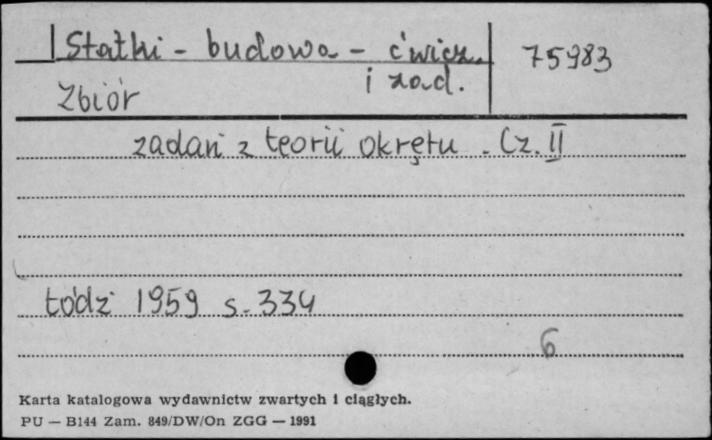 Statki - budowa - ćwicz. 75983
i zad.
Zbiór
zadań z teorii okrętu. Cz. II
Łódź 1959 s. 334
6
Karta katalogowa wydawnictw zwartych i ciągłych.
PU — B144 Zam. 849/DW/On ZGG — 1991